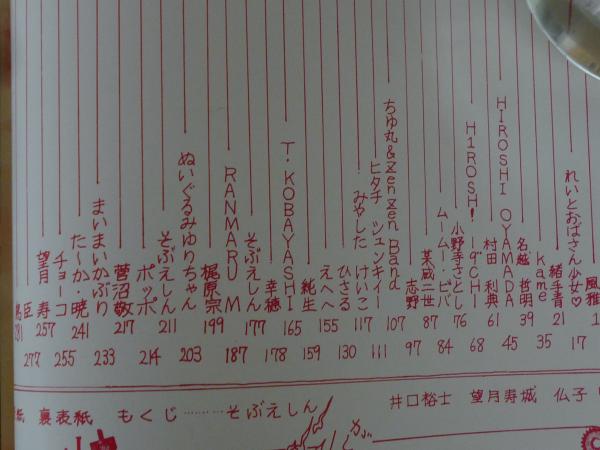 風雅 1
れいとおばさん少女♡ 17
緒手青 21
kame 35
名越 哲明 39
HIROSHI OYAMADA 45
村田 利典 61
HIROSH! ーダCHI 68
小野寺さとし 76
ムームー・ピバ 84
某蔵二世 87
志野 97
ちゅ丸&Zenzen Band 107
ヒタチ シュンキイー 111
みやした けいこ 117
ひさる 130
えへへ 155
純生 159
T・KOBAYASHI 165
幸穂 178
そぶえしん 177
RANMARU M 187
梶原宗 199
ぬいぐるみゆりちゃん 203
そぶえしん 211
ポッポ 214
菅沼敬 217
まいまいかぶり 233
たーか暁 241
チョーコ 255
望月 寿 257
臣 277
裏表紙 もくじ………そぶえしん
井口裕士 望月寿城 仏子